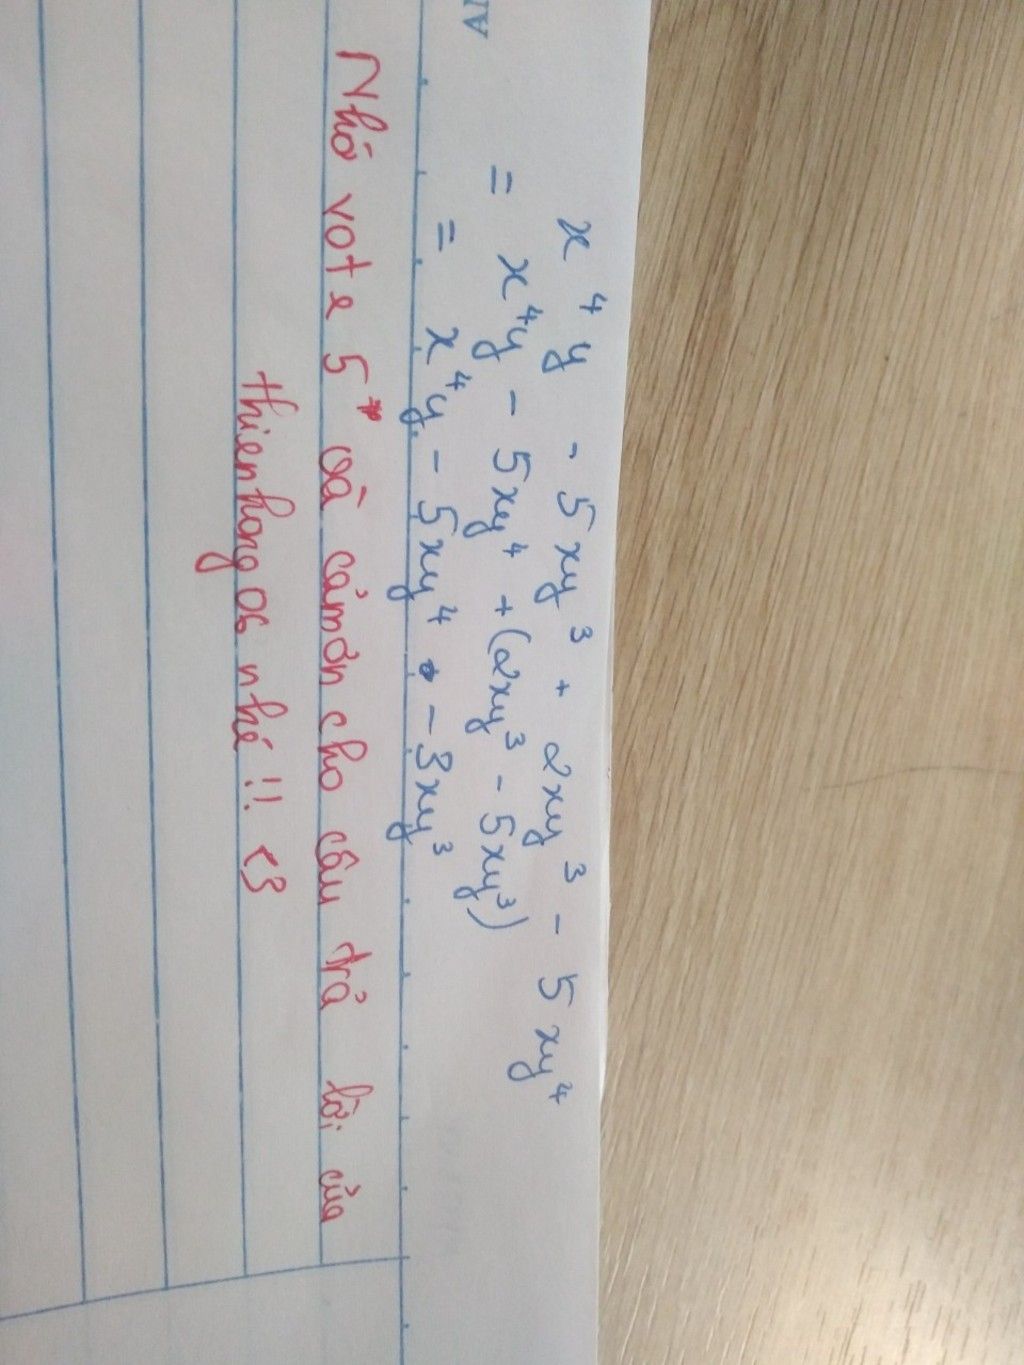 x⁴y - 5xy³ + 2xy³ - 5xy⁴
= x⁴y - 5xy⁴ + (2xy³ - 5xy³)
= x⁴y - 5xy⁴ - 3xy³
Nhớ vote 5* và cảm ơn cho câu trả lời của
thienhong06 nhé !! <3